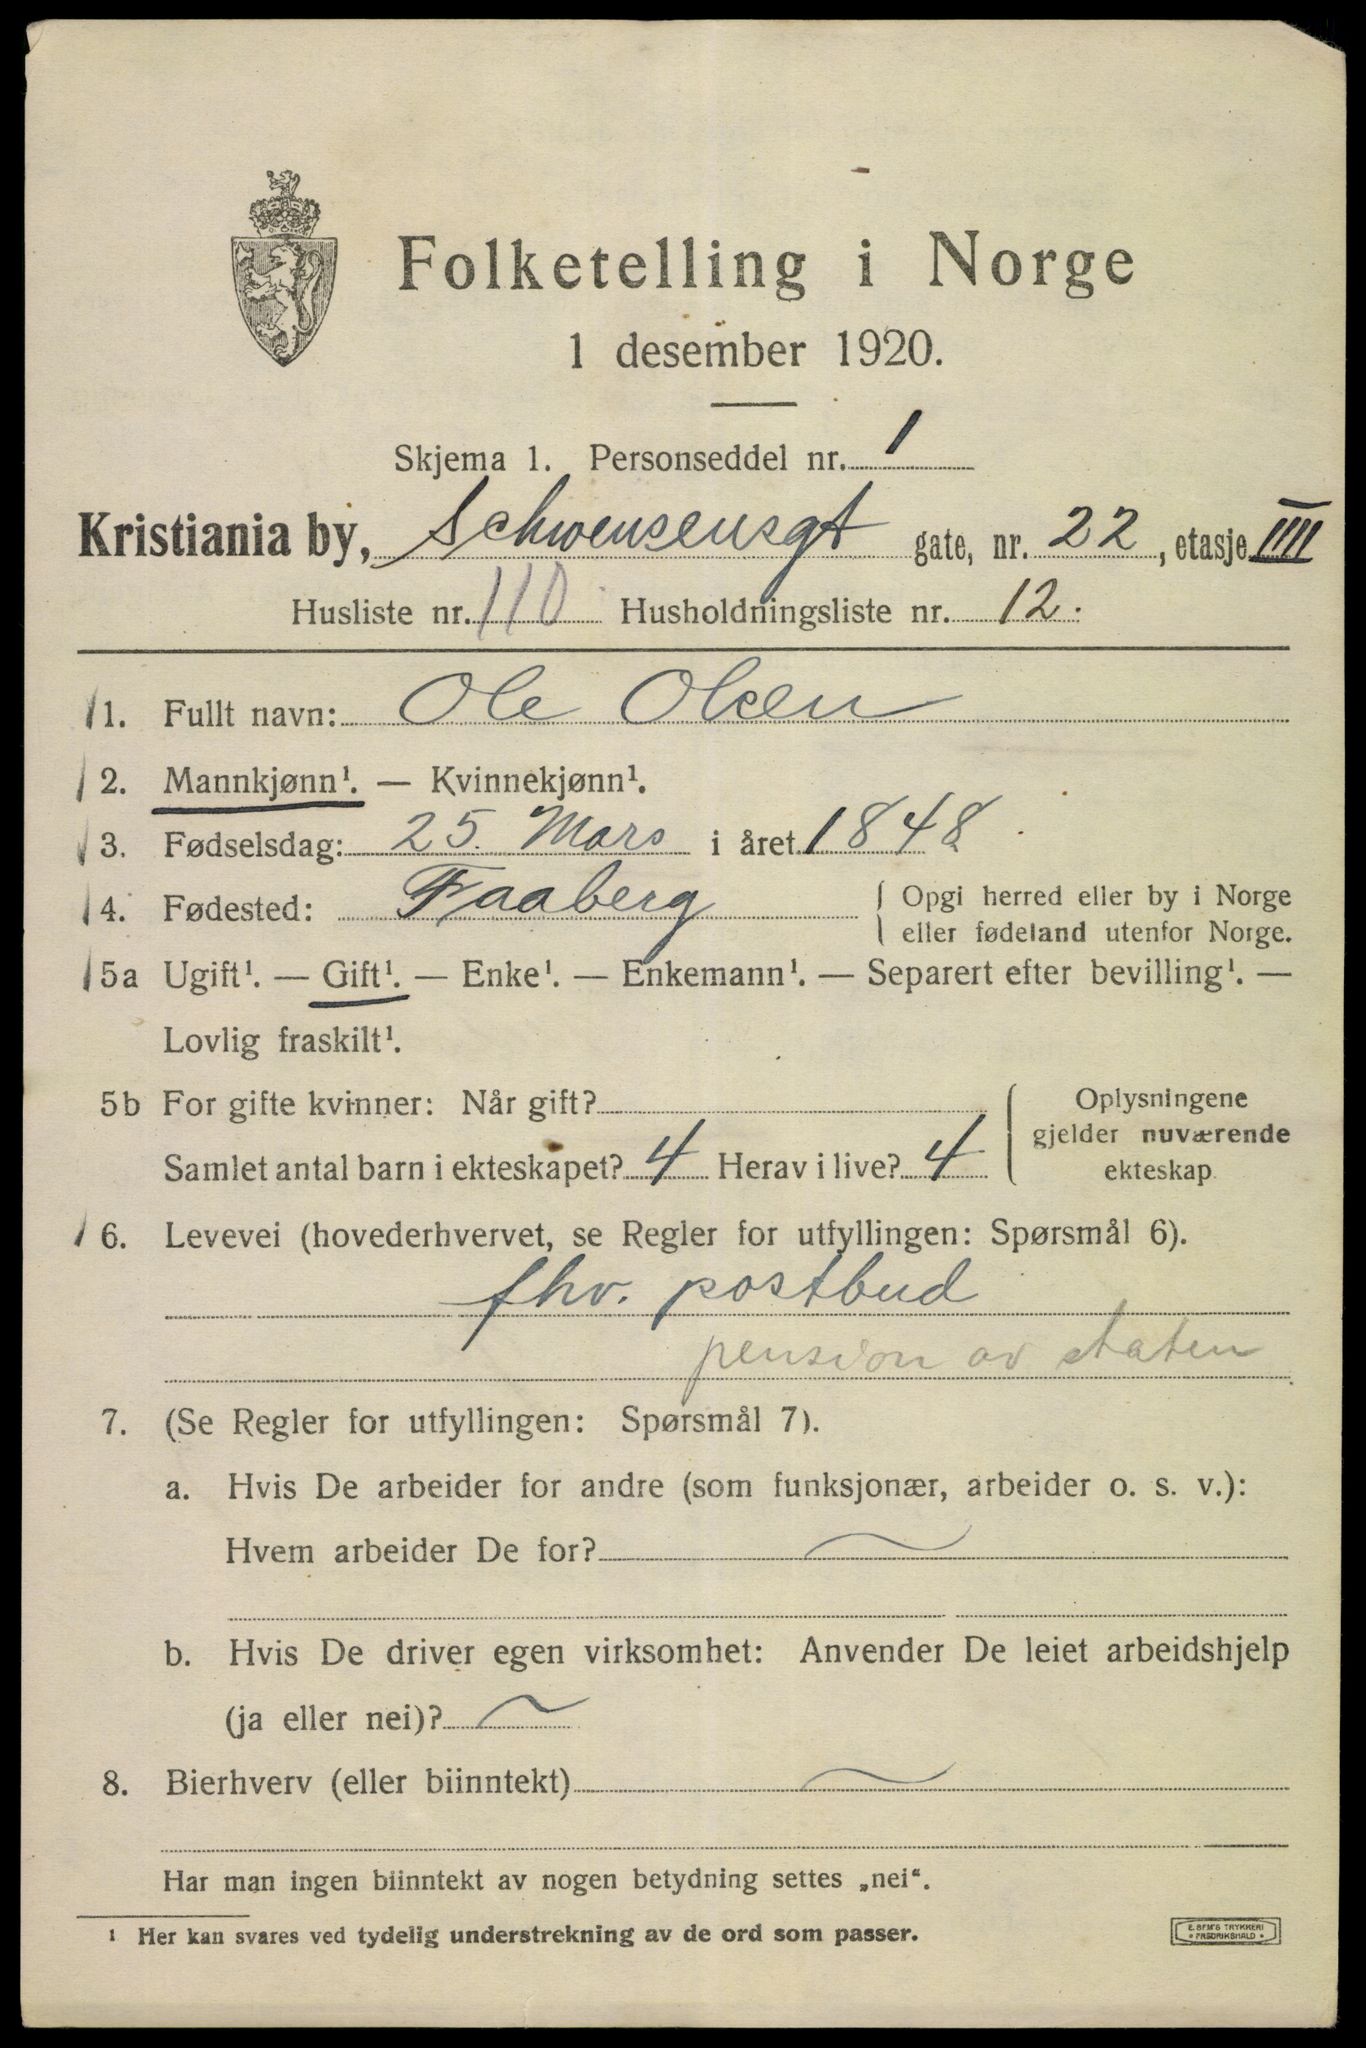 Folketelling i Norge
1 desember 1920.
Skjema 1. Personseddel nr. 1
Kristiania by, Schwensensgt gate, nr. 22, etasje IIII
Husliste nr. 110 Husholdningsliste nr. 12.
1. Fullt navn: Ole Olsen
2. Mannkjønn¹. — Kvinnekjønn¹.
3. Fødselsdag: 25. Mars i året 1848
4. Fødested: Faaberg
Opgi herred eller by i Norge
eller fødeland utenfor Norge.
5a Ugift¹. — Gift¹. — Enke¹. — Enkemann¹. — Separert efter bevilling¹. —
Lovlig fraskilt¹.
5b For gifte kvinner: Når gift?
Samlet antal barn i ekteskapet? 4 Herav i live? 4
Oplysningene
gjelder nuværende
ekteskap
6. Levevei (hovederhvervet, se Regler for utfyllingen: Spørsmål 6).
fhv. postbud
pension av staten
7. (Se Regler for utfyllingen: Spørsmål 7).
a. Hvis De arbeider for andre (som funksjonær, arbeider o. s. v.):
Hvem arbeider De for? ~
b. Hvis De driver egen virksomhet: Anvender De leiet arbeidshjelp
(ja eller nei)? ~
8. Bierhverv (eller biinntekt) ~
Har man ingen biinntekt av nogen betydning settes „nei“.
¹ Her kan svares ved tydelig understrekning av de ord som passer.
E. SEM'S TRYKKERI
• FREDRIKSHALD •